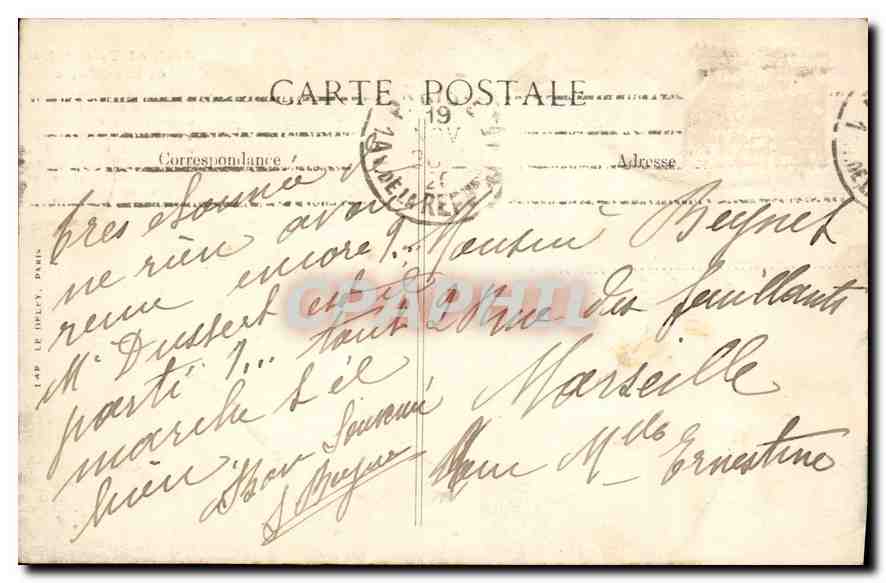 CARTE POSTALE
Correspondance
Adresse
19
AV. DE LA REP
Très étonné
ne rien avoir
reçu encore ?..
Mr Dussert est il
parti ?... tout
marche t'il
bien
Bon Souvenir
Monsieur Beynet
2 Rue des feuillants
Marseille
Pour Mlle Ernestine
IMP. LE DELEY, PARIS
CPAPHIL